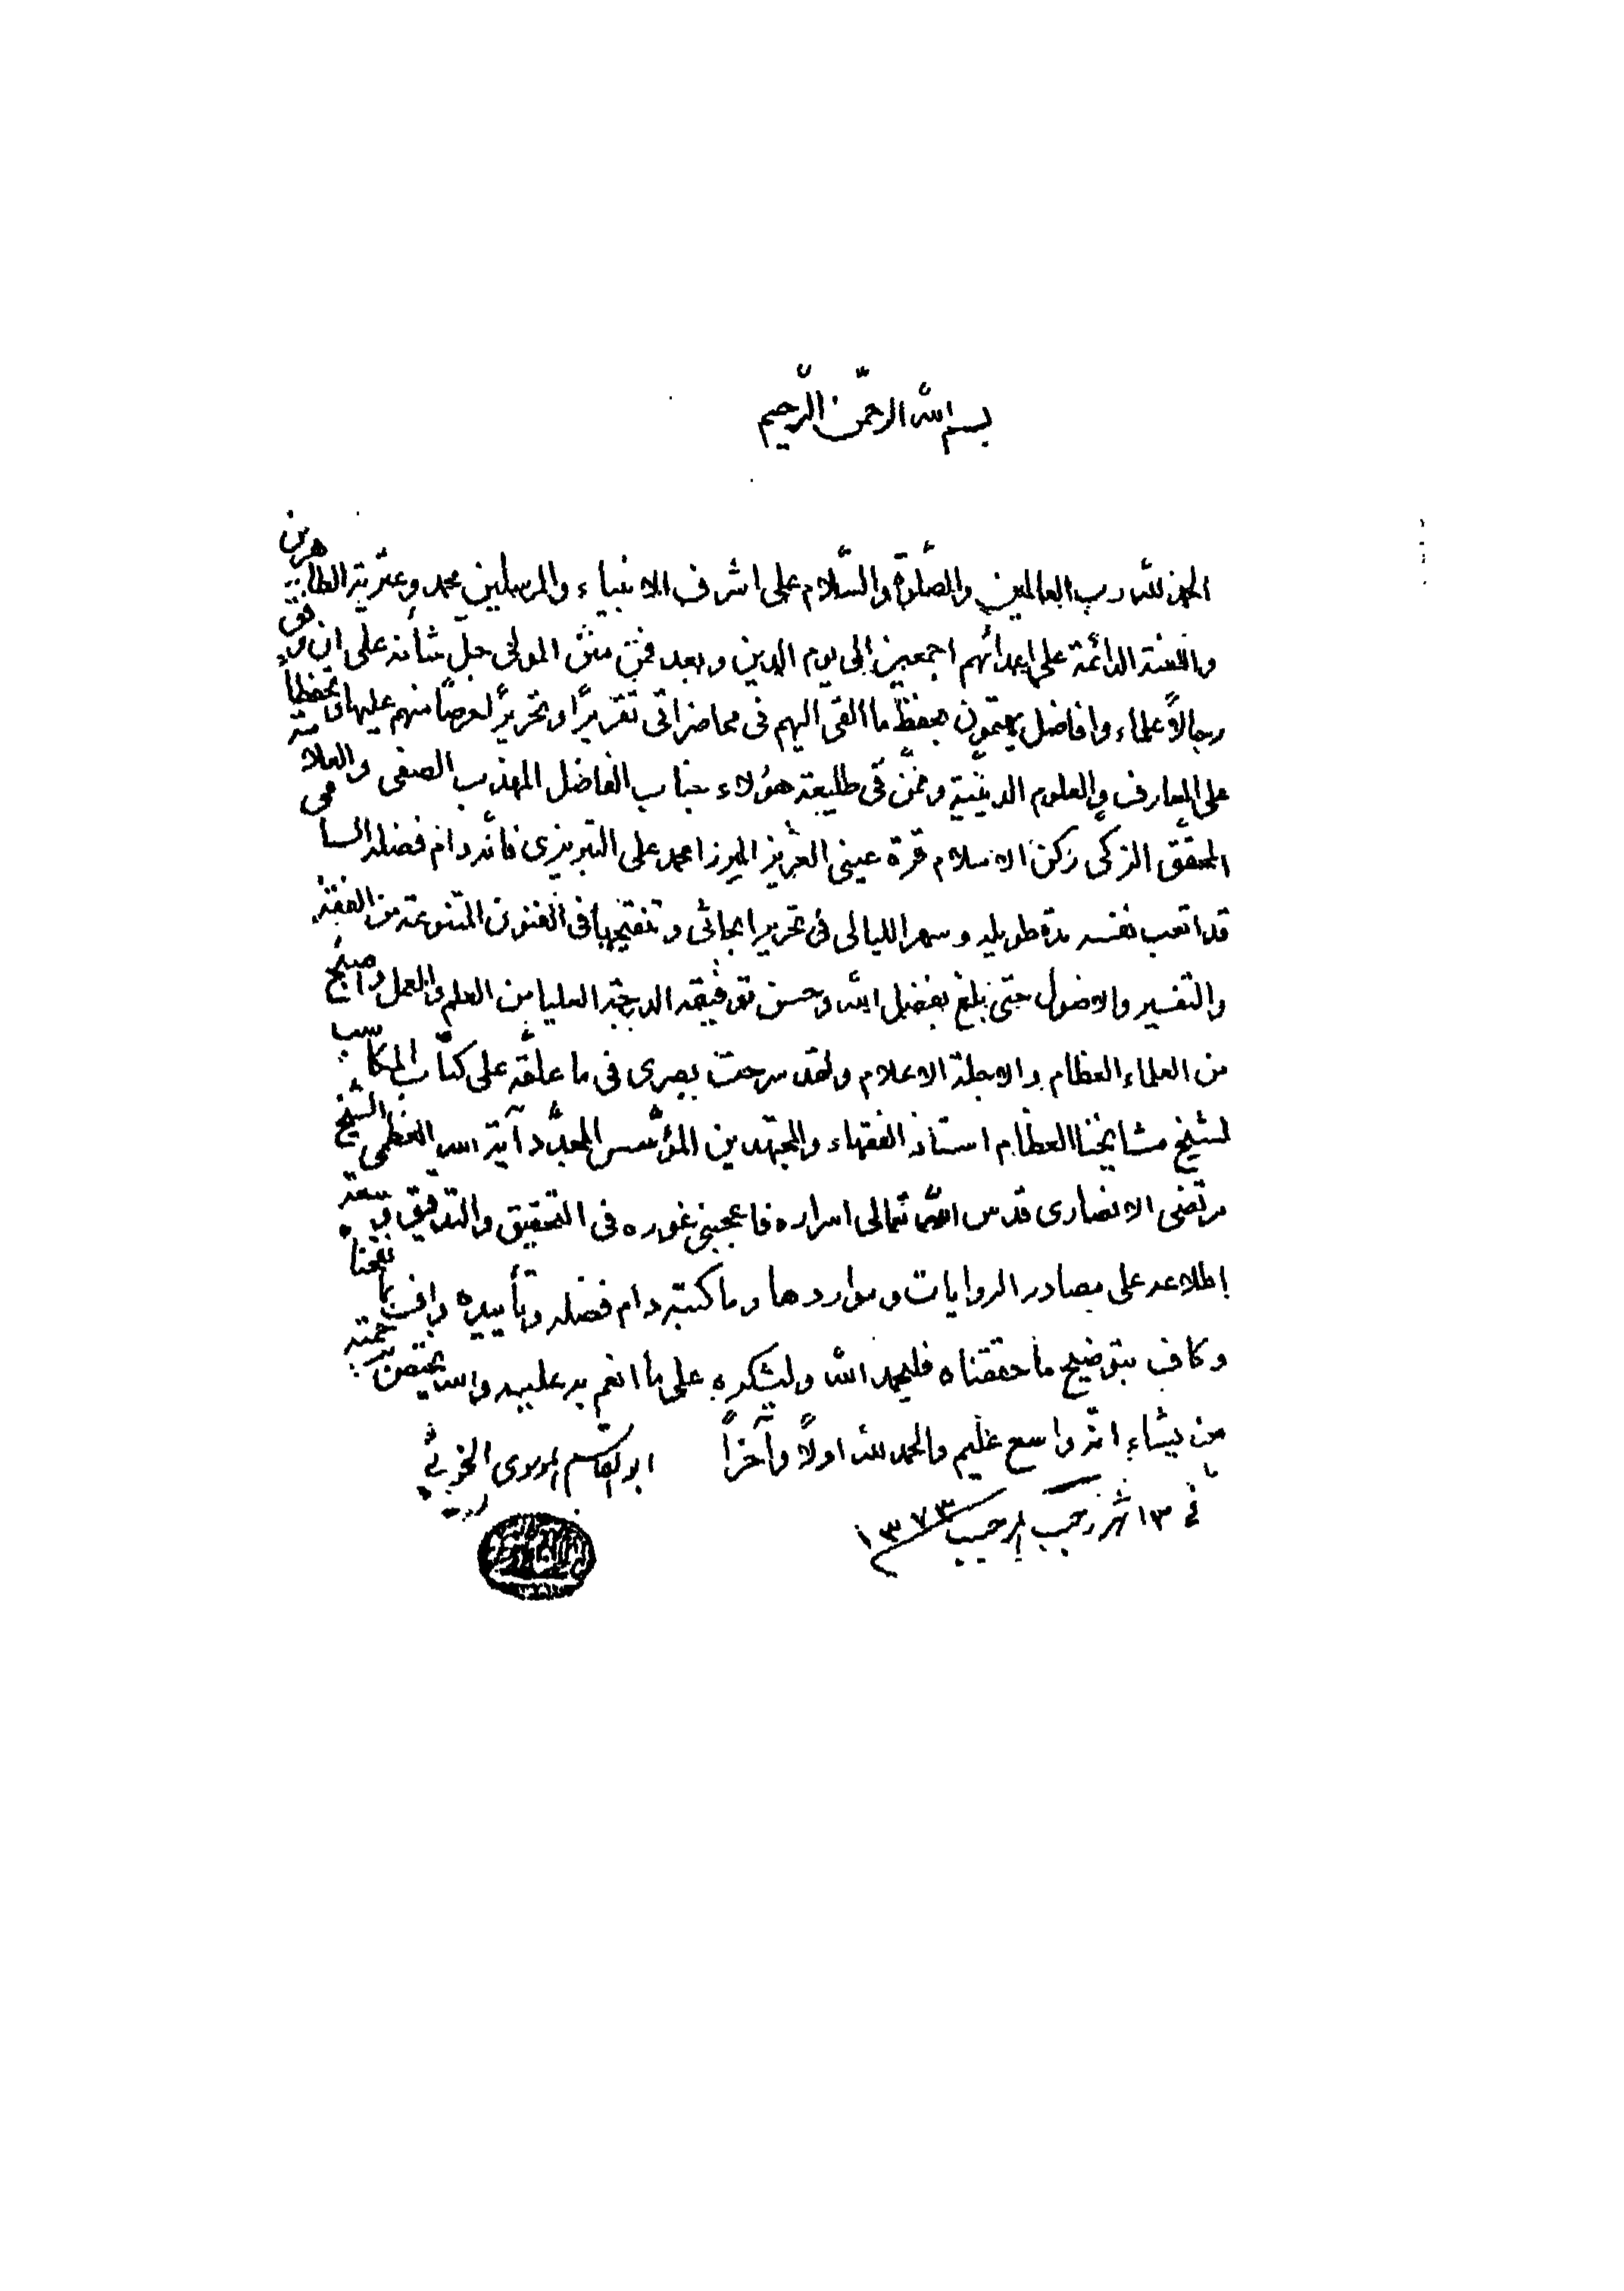 بسم الله الرحمن الرحيم
الحمد لله رب العالمين والصلوة والسّلام على اشرف الانبياء والمرسلين محمد وعترته الطاهرين
واللعنة الدائمة على اعدائهم اجمعين الى يوم الدين وبعد فمن منن المولى جلّ شأنه على ان وفق
رجالاً علماء وافاضل يهتمون بحفظ ما القى اليهم فى محاضراتى تقريرًا وتحريرًا حرصًا منهم عليها وتحفظاً
على المعارف والعلوم الدينيّة وممّن فى طليعة هؤلاء جناب الفاضل المهذب الصفى والعلامة
المحقّق الزكى ركن الاسلام قرة عينى العزيز الميرزا محمد على التبريزى فانّه دام فضله السامى
قد اتعب نفسه مدة طويلة وسهر الليالى فى تحرير ابحاثى وتنقيحها فى الفنون المتنوعة من الفقه
والتفسير والاصول حتى بلغ بفضل الله وحسن توفيقه الدرجة العليا من العلم والعمل واصبح
من العلماء العظام والاجلة الاعلام ولقد سرحت بصرى فى ما علقه على كتاب المكاسب
لشيخ مشايخنا العظام استاذ الفقهاء والمجتهدين المؤسّس المجدّد آية الله العظمى الشيخ
مرتضى الانصارى قدس الله تعالى اسراره فاعجبنى غوره فى التحقيق والتدقيق وسعة
اطلاعه على مصادر الروايات ومواردها وما كتبه دام فضله وتأييده واف بما نقحناه
وكاف بتوضيح ما حققناه فليحمد الله وليشكره على ما انعم به عليه والله يختص برحمته
من يشاء انّه واسع عليم والحمد لله اولاً وآخراً
ابو القاسم الموسوى الخوئي
في ١٣ شهر رجب المرجب ١٣٧٣